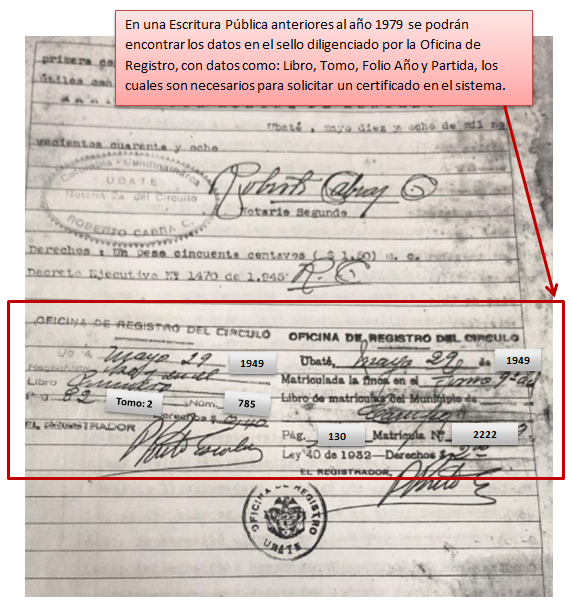 En una Escritura Pública anteriores al año 1979 se podrán
encontrar los datos en el sello diligenciado por la Oficina de
Registro, con datos como: Libro, Tomo, Folio Año y Partida, los
cuales son necesarios para solicitar un certificado en el sistema.
primera co
útiles con
Ubaté , mayo diez y ocho de mil no
vecientos cuarenta y ocho
Colombia - Cundinamarca
UBATE
Notaría 2a. del Circuito
ROBERTO CABRA C.
Roberto Cabra C
Notario Segundo
Derechos : Un peso cincuenta centavos ( $ 1,50) m. c.
Decreto Ejecutivo Nº 1470 de 1.945
OFICINA DE REGISTRO DEL CIRCULO
Mayo 29 1949
Libro Primero
Pág. 82 Tomo: 2 Núm. 785
Derechos $
EL REGISTRADOR
OFICINA DE REGISTRO DEL CIRCULO
Ubaté, mayo 29 de 1949
Matriculada la finca en el Tomo
Libro de matrículas del Municipio de
Pág. 130 Matrícula Nº 2222
Ley 40 de 1932—Derechos $
EL REGISTRADOR,
OFICINA DE REGISTRO
UBATE